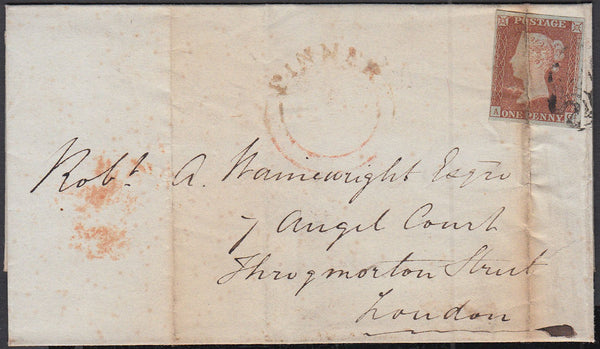 POSTAGE
A
ONE PENNY
PINNER
Robt. A. Wainewright Esqre
7 Angel Court
Throgmorton Street
London